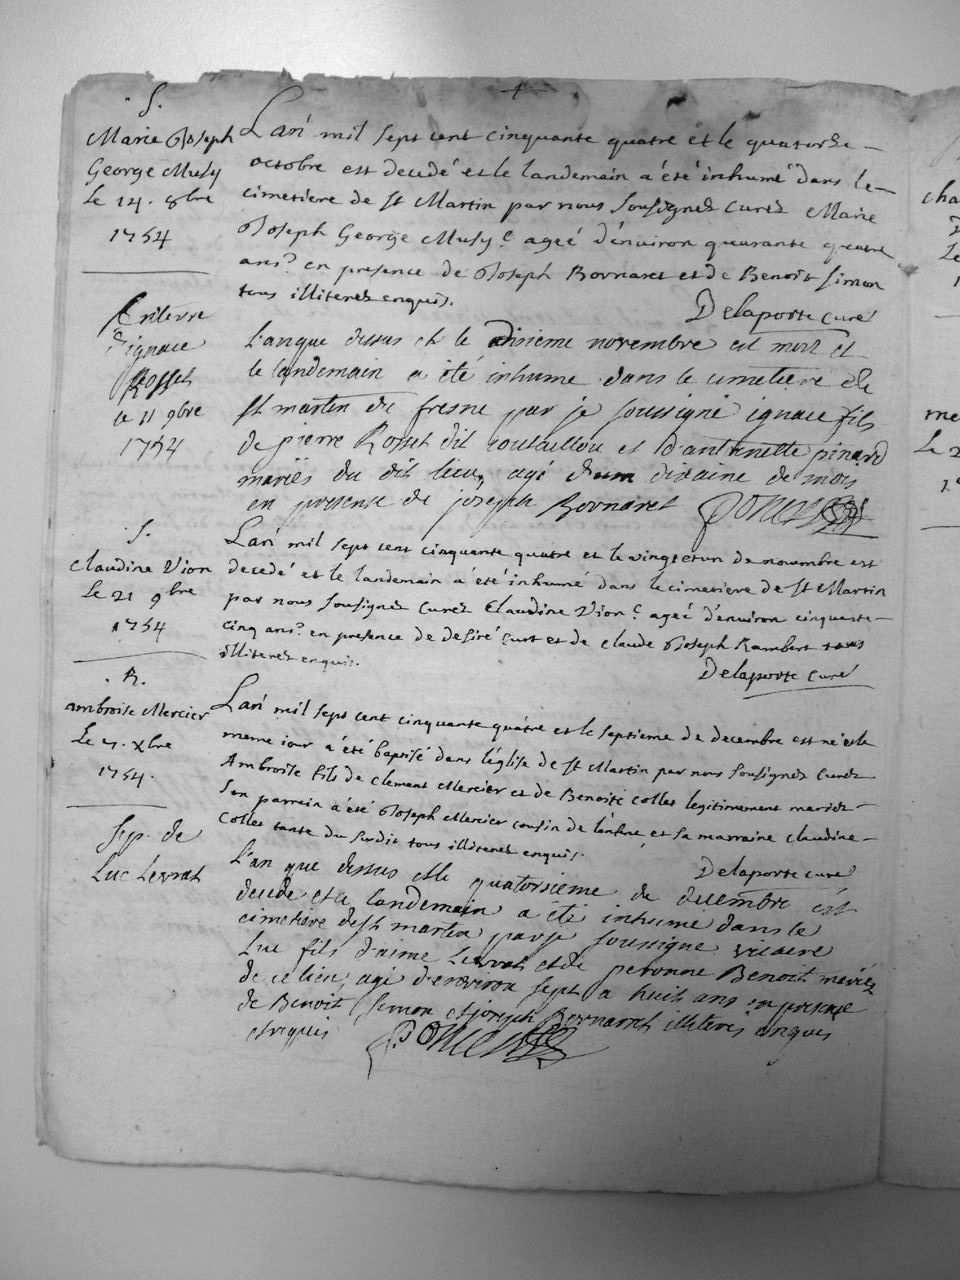 S.
Marie Joseph
George Musy
Le 14. 8bre
1754
L'an mil sept cent cinquante quatre et le quatorze
octobre est decedé et le landemain a été inhumé dans le
cimetiere de St Martin par nous soussignez curez Marie
Joseph George Musy ageé d'environ quarante quatre
ans en presence de Joseph Bovnaret et de Benoit Simon
tous illiterez enquis.
Delaporte curé
ignace
Rosset
le 11 9bre
1754
L'an que dessus et le disieme novembre est mort et
le landemain a été inhume dans le cimetiere de
St martin du fresne par je soussigné ignace fils
de pierre Rosset dit coutaillou et d'antoinette pinard
mariés du dit lieu, agé d'un dixaine de mois
en presence de joseph Bovnaret
S.
claudine Vion
Le 21 9bre
1754
L'an mil sept cent cinquante quatre et le vingt et un de novembre est
decedé et le landemain a été inhumé dans le cimetiere de St Martin
par nous soussignez curez Claudine Vion agеé d'environ cinquante
cinq ans en presence de desiré Curt et de claude Joseph Rambert tous
illiterez enquis.
Delaporte curé
R.
ambroise Mercier
Le 7. Xbre
1754.
L'an mil sept cent cinquante quatre et le septieme de decembre est né et le
meme iour a été baptisé dans l'église de St Martin par nous soussignez curez
Ambroise fils de Clement Mercier et de Benoite Colles legitimement mariez
son parrain a été Joseph Mercier cousin de l'enfant et sa marraine claudine
Colles tante du susdit tous illiterez enquis.
Delaporte curé
Sep. de
Luc Levrat
L'an que dessus et le quatorsieme de decembre est
decedé et le landemain a été inhumé dans le
cimetiere de St martin par je soussigne vicaire
Luc fils d'aimé Levrat et de peronne Benoit mariéz
de ce lieu, agé d'environ sept a huit ans en presence
de Benoit Simon et joseph Bovnaret illiterés enquis
et requis